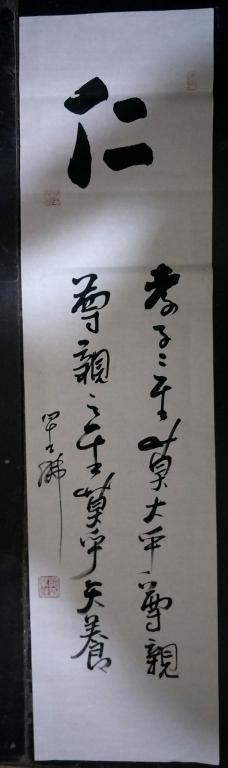 仁
孝子之至莫大乎尊親
尊親之至莫乎天養